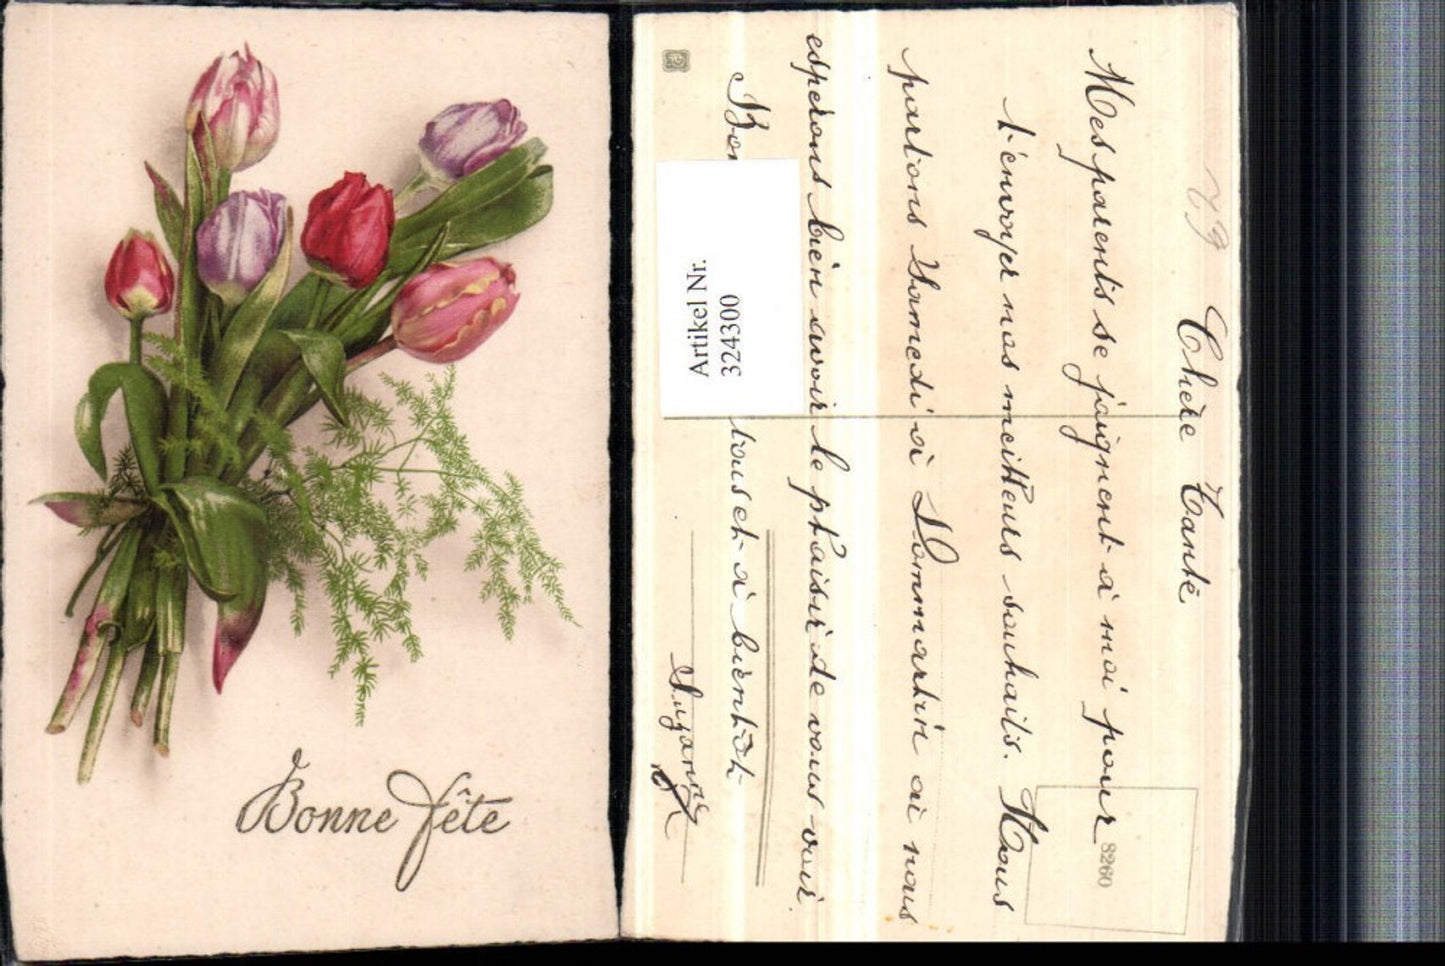 Bonne fête
Chère Tante
Mes parents se joignent à moi pour
t'envoyer nos meilleurs souhaits. Nous
partons Samedi à Dommartin où nous
esperons bien avoir le plaisir de vous voir.
Bon
tous et à bientôt
Suzanne
Artikel Nr.
324300
8260